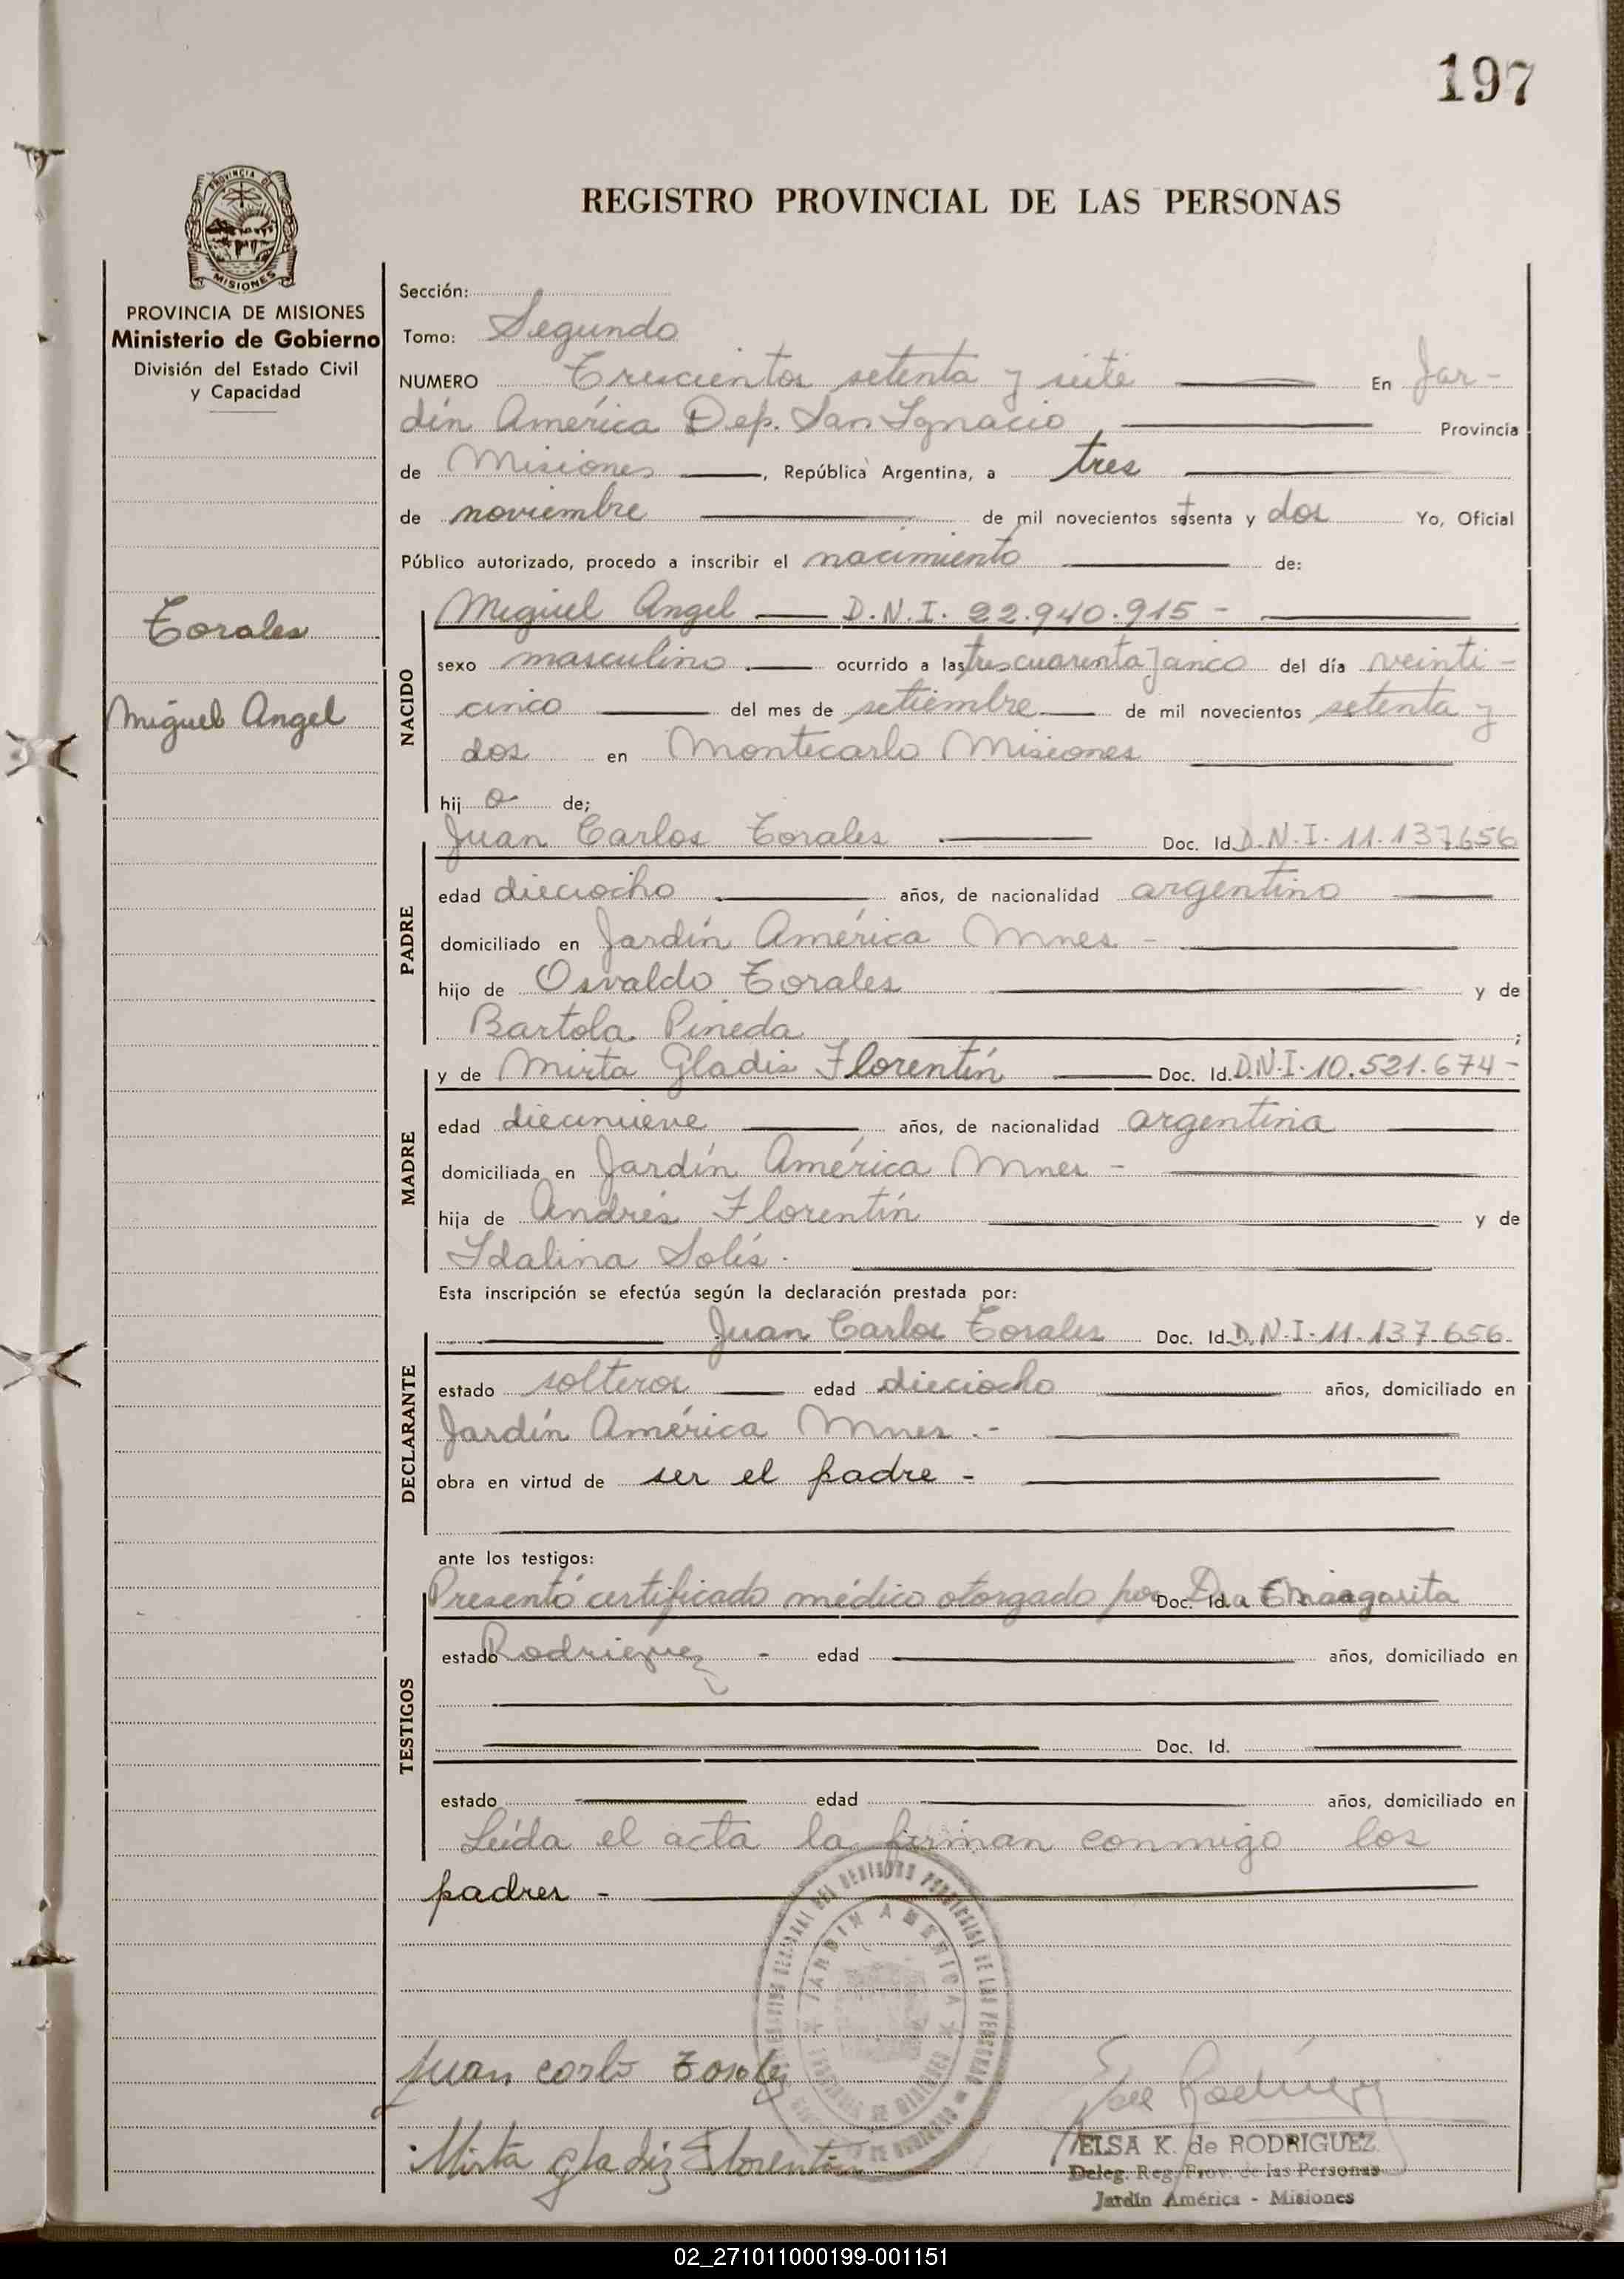 197
PROVINCIA DE
MISIONES
REGISTRO PROVINCIAL DE LAS PERSONAS
PROVINCIA DE MISIONES
Ministerio de Gobierno
División del Estado Civil
y Capacidad
Torales
Miguel Angel
Sección:
Tomo: Segundo
NUMERO Trescientos setenta y siete En Jar-
dín América Dep. San Ignacio, Provincia
de Misiones, República Argentina, a tres
de noviembre de mil novecientos setenta y dos Yo, Oficial
Público autorizado, procedo a inscribir el nacimiento de:
NACIDO
Miguel Angel D.N.I. 22.940.915 -
sexo masculino ocurrido a las tres cuarenta y cinco del día veinti-
cinco del mes de setiembre de mil novecientos setenta y
dos en Montecarlo Misiones
hijo de;
PADRE
Juan Carlos Torales Doc. Id. D.N.I. 11.137.656
edad dieciocho años, de nacionalidad argentino
domiciliado en Jardín América Mnes -
hijo de Osvaldo Torales y de
Bartola Pineda ;
MADRE
y de Mirta Gladis Florentín Doc. Id. D.N.I. 10.521.674 -
edad diecinueve años, de nacionalidad argentina
domiciliada en Jardín América Mnes -
hija de Andrés Florentín y de
Idalina Solís.
Esta inscripción se efectúa según la declaración prestada por:
DECLARANTE
Juan Carlos Torales Doc. Id. D.N.I. 11.137.656.
estado solteros edad dieciocho años, domiciliado en
Jardín América Mnes .-
obra en virtud de ser el padre -
ante los testigos:
TESTIGOS
Presentó certificado médico otorgado por Doc. Id. Dra E Margarita
estado Rodriguez - edad años, domiciliado en
Doc. Id.
estado edad años, domiciliado en
Leída el acta la firman conmigo los
padres -
JARDIN AMERICA
Juan Carlo Torales
Mirta Gladis Florentín
Elsa Rodriguez
ELSA K. de RODRIGUEZ
Deleg. Reg. Prov. de las Personas
Jardín América - Misiones
02_271011000199-001151